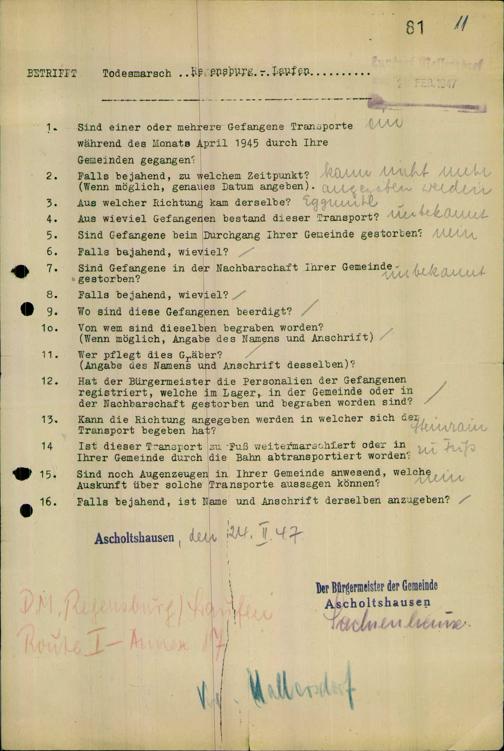 81 11
Landrat Mallersdorf
FEB. 1947
BETRIFFT Todesmarsch ..Regensburg.-.Laufen..........
1. Sind einer oder mehrere Gefangene Transporte ein
während des Monats April 1945 durch Ihre
Gemeinden gegangen?
2. Falls bejahend, zu welchem Zeitpunkt? kann nicht mehr
(Wenn möglich, genaues Datum angeben). angegeben werden
3. Aus welcher Richtung kam derselbe? Eggmühl
4. Aus wieviel Gefangenen bestand dieser Transport? unbekannt
5. Sind Gefangene beim Durchgang Ihrer Gemeinde gestorben? nein
6. Falls bejahend, wieviel? /
7. Sind Gefangene in der Nachbarschaft Ihrer Gemeinde unbekannt
gestorben?
8. Falls bejahend, wieviel? /
9. Wo sind diese Gefangenen beerdigt? /
1o. Von wem sind dieselben begraben worden?
(Wenn möglich, Angabe des Namens und Anschrift) /
11. Wer pflegt dies Gräber? /
(Angabe des Namens und Anschrift desselben)?
12. Hat der Bürgermeister die Personalien der Gefangenen
registriert, welche im Lager, in der Gemeinde oder in
der Nachbarschaft gestorben und begraben worden sind? /
13. Kann die Richtung angegeben werden in welcher sich der
Transport begeben hat? Steinrain
14 Ist dieser Transport zu Fuß weitermarschiert oder in
Ihrer Gemeinde durch die Bahn abtransportiert worden? zu Fuß
15. Sind noch Augenzeugen in Ihrer Gemeinde anwesend, welche
Auskunft über solche Transporte aussagen können? nein
16. Falls bejahend, ist Name und Anschrift derselben anzugeben? /
Ascholtshausen, den 24. II. 47
Der Bürgermeister der Gemeinde
Ascholtshausen
D.M. Regensburg/Laufen
Route I - Annex 17
Kr. Mallersdorf